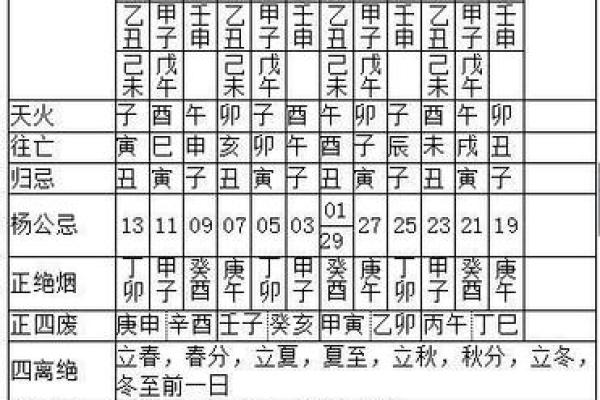 乙丑 甲子 壬申 乙丑 甲子 壬申 乙丑 甲子 壬申 乙丑 甲子 壬申
己未 戊午 己未 戊午 己未 戊午 己未 戊午
天火 子 酉 午 卯 子 酉 午 卯 子 酉 午 卯
往亡 寅 巳 申 亥 卯 午 酉 子 辰 未 戌 丑
归忌 丑 寅 子 丑 寅 子 丑 寅 子 丑 寅 子
杨公忌 13 11 09 07 05 03 01 29 27 25 23 21 19
正绝烟 丁卯 甲子 癸酉 庚午 丁卯 甲子 癸酉 庚午 丁卯 甲子 癸酉 庚午
正四废 庚申 辛酉 壬子 癸亥 甲寅 乙卯 丙午 丁巳
四离绝 立春，春分，立夏，夏至，立秋，秋分，立冬，
冬至前一日